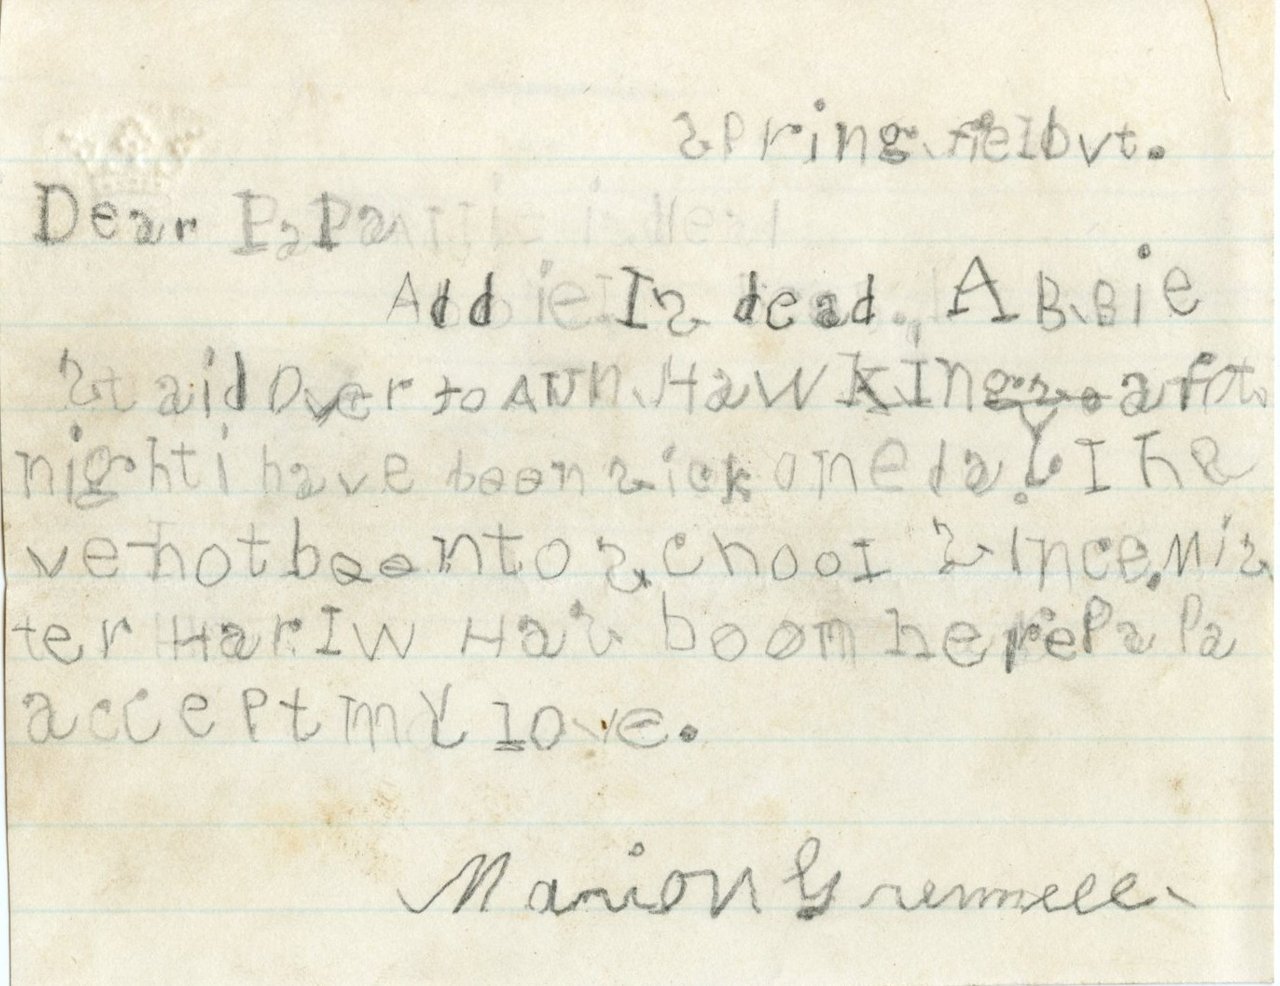 Springfield vt.
Dear Papa
Add Is dead. Abbie
staid over to Aun Hawkings a fort
night i have been sick one day. I ha
ve not been to school since. Mis
ter Harlw Has boon here Papa
accept my love.
Marion Grennell